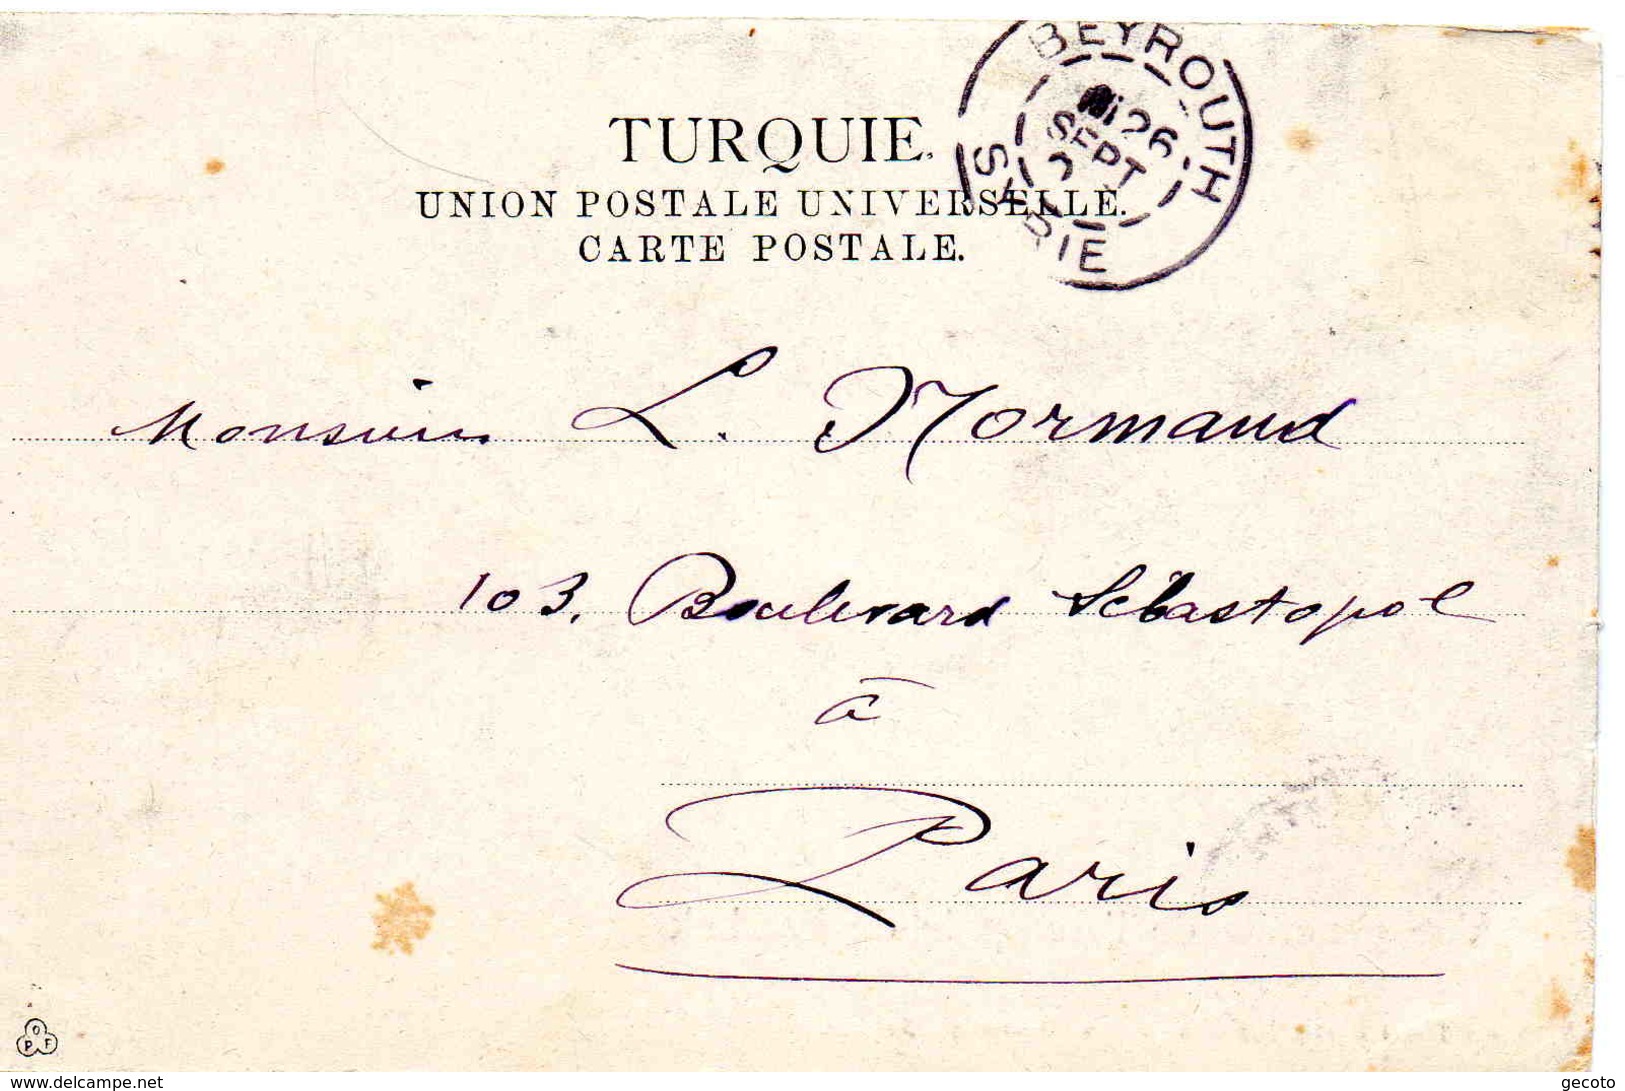 BEYROUTH
26
SEPT
SYRIE
TURQUIE.
UNION POSTALE UNIVERSELLE.
CARTE POSTALE.
Monsieur L. Normand
103, Boulevard Sébastopol
à
Paris
O
P F
www.delcampe.net
gecoto